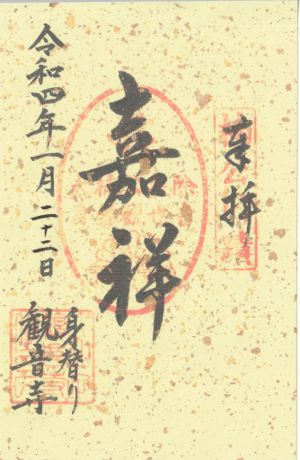 奉拝
嘉祥
令和四年一月二十二日
身替り
観音寺